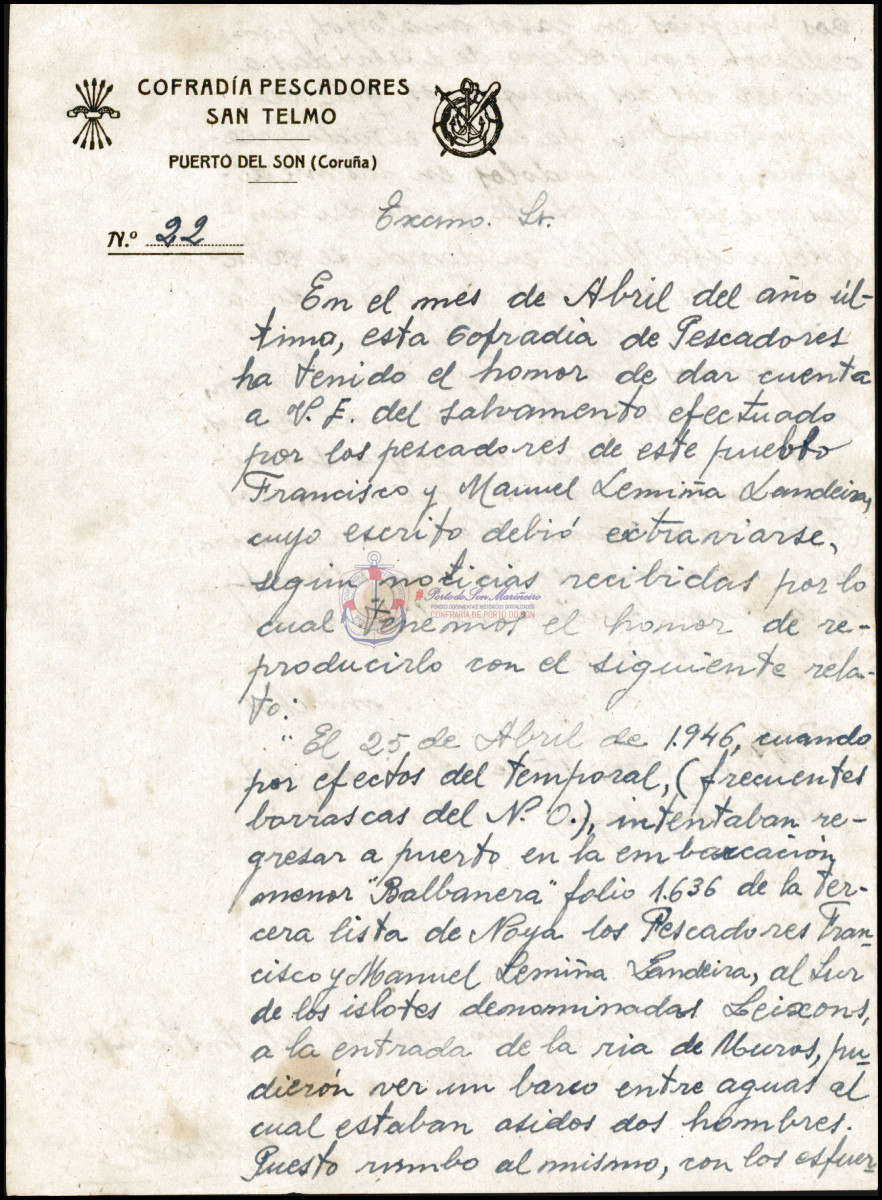 COFRADÍA PESCADORES
SAN TELMO
PUERTO DEL SON (Coruña)
N.º 22
Excmo. Sr.
En el mes de Abril del año úl-
timo, esta Cofradia de Pescadores
ha tenido el honor de dar cuenta
a V. E. del salvamento efectuado
por los pescadores de este pueblo
Francisco y Manuel Lemiña Landeira,
cuyo escrito debió extraviarse,
segun noticias recibidas por lo
cual tenemos el honor de re-
producirlo con el siguiente rela-
to:
"El 25 de Abril de 1.946, cuando
por efectos del temporal, (frecuentes
borrascas del N. O.), intentaban re-
gresar a puerto en la embarcación
menor "Balbanera" folio 1.636 de la ter-
cera lista de Noya los Pescadores Fran-
cisco y Manuel Lemiña Landeira, al Sur
de los islotes denominadas Leixons,
a la entrada de la ria de Muros, pu-
dierón ver un barco entre aguas al
cual estaban asidos dos hombres.
Puesto rumbo al mismo, con los esfuer-
#Porto do Son Mariñeiro
FONDOS DOCUMENTAIS HISTÓRICOS DIXITALIZADOS
CONFRARÍA DE PORTO DO SON